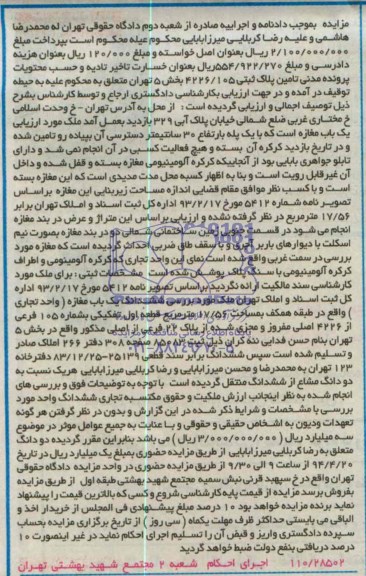 مزایده بموجب دادنامه و اجراییه صادره از شعبه دوم دادگاه حقوقی تهران له محمدرضا
هاشمی و علیه رضا کربلایی میرزابابایی محکوم علیه محکوم است بپرداخت مبلغ
۲/۱۰۰/۰۰۰/۰۰۰ ریال بعنوان اصل خواسته و مبلغ ۱۲۰/۰۰۰ ریال بعنوان هزینه
دادرسی و مبلغ ۵۵۴/۹۲۲/۲۷۰ریال بعنوان خسارت تاخیر تادیه و حسب محتویات
پرونده مدنی تامین پلاک ثبتی ۴۲۲۶/۱۰۵ بخش ۵ تهران متعلق به محکوم علیه به حیطه
توقیف در آمده و در جهت ارزیابی بکارشناسی دادگستری ارجاع و توسط کارشناس بشرح
ذیل توصیف اجمالی و ارزیابی گردیده است : از محل به آدرس تهران - خ وحدت اسلامی
خ مختاری غربی ضلع شمالی خیابان پلاک آبی ۳۲۹ بازدید بعمل آمد ملک مورد ارزیابی
یک باب مغازه است که با یک پله بارتفاع ۳۰ سانتیمتر دسترسی آن بپیاده رو تامین شده
و در تاریخ بازدید کرکره آن بسته و هیچ فعالیت کسبی در آن انجام نمی شد و دارای
تابلو جواهری بابایی بود از آنجاییکه کرکره آلومینیومی مغازه بسته و قفل شده و داخل
آن غیرقابل رویت است و بنا به اظهار کسبه محل مدت مدیدی است که این مغازه بسته
است و با کسب نظر موافق مقام قضایی اندازه مساحت زیربنایی این مغازه براساس
تصویر نامه شماره ۵۴۱۲ مورخ ۹۳/۲/۱۷ اداره کل ثبت اسناد و املاک تهران برابر
۱۷/۵۶ مترمربع در نظر گرفته شده و ارزیابی براساس این متراژ و عرض در بند مغازه
انجام می شود در قسمت ساختمانی شمالی دو در بند مغازه بصورت نیم
اسکلت با دیوارهای باربر آجری و با سقف طاق ضربی احداث گردیده است که مغازه مورد
بررسی در سمت غربی واقع شده است نمای این واحد تجاری که کرکره آلومینومی و اطراف
کرکره آلومینیومی با سنگ پلاک پوشش شده است مشخصات ثبتی : برای ملک مورد
کارشناسی سند مالکیت ارائه نگردید براساس تصویر نامه ۵۴۱۲ مورخ ۹۳/۲/۱۷ اداره
کل ثبت اسناد و املاک تهران ملک مورد بررسی ششدانگ یک باب مغازه ( واحد تجاری
) واقع در طبقه همکف بمساحت ۱۷/۵۶ مترمربع قطعه اول تفکیکی بشماره ۱۰۵ فرعی
از ۴۲۲۶ اصلی مفروز و مجزی شده از پلاک ۲۲ فرعی از اصلی مذکور واقع در بخش ۵
تهران بنام حسن فدایی ننه کران ذیل ثبت ۸۵۰۸۳ صفحه ۳۰۸ دفتر ۲۶۶ املاک صادر
و تسلیم شده است سپس ششدانگ برابر سند قطعی ۲۵۱۳۹-۸۳/۱۲/۲۵ دفترخانه
۱۲۳ تهران به محمدرضا و محسن میرزابابایی و رضا کربلایی میرزابابایی هریک نسبت به
دو دانگ مشاع از ششدانگ منتقل گردیده است با توجه به توضیحات فوق و بررسی های
انجام شده به نظر اینجانب ارزش ملکیت و حقوق مکتسبه تجاری ششدانگ واحد مورد
بررسی با مشخصات و شرایط ذکر شده در این گزارش و بدون در نظر گرفتن هر گونه
تعهدات ودیون به اشخاص حقیقی و حقوقی و با عنایت به جمیع عوامل موثر در موضوع
سه میلیارد ریال ( ۳/۰۰۰/۰۰۰/۰۰۰ ریال ) می باشد بنابراین مقرر گردیده دو دانگ
متعلق به رضا کربلایی میرزابابایی از طریق مزایده حضوری بمبلغ یک میلیارد ریال در تاریخ
۹۴/۴/۲۰ از ساعت ۹ الی ۹/۳۰ از طریق مزایده حضوری در واحد مزایده دادگاه حقوقی
تهران واقع در خ سپهبد قرنی نبش سمیه مجتمع شهید بهشتی طبقه اول از طریق مزایده
بفروش برسد مزایده از قیمت پایه کارشناسی شروع و کسی که بالاترین قیمت را پیشنهاد
نماید برنده مزایده خواهد بود ۱۰ درصد مبلغ پیشنهادی فی المجلس از خریدار اخذ و
الباقی می بایستی حداکثر ظرف مهلت یکماه ( سی روز ) از تاریخ برگزاری مزایده بحساب
سپرده دادگستری واریز و قبض آن را تسلیم اجرای احکام نماید در غیر اینصورت ۱۰
درصد دریافتی بنفع دولت ضبط خواهد گردید
۱۱۰/۲۸۵۰۲ اجرای احکام شعبه ۲ مجتمع شهید بهشتی تهران